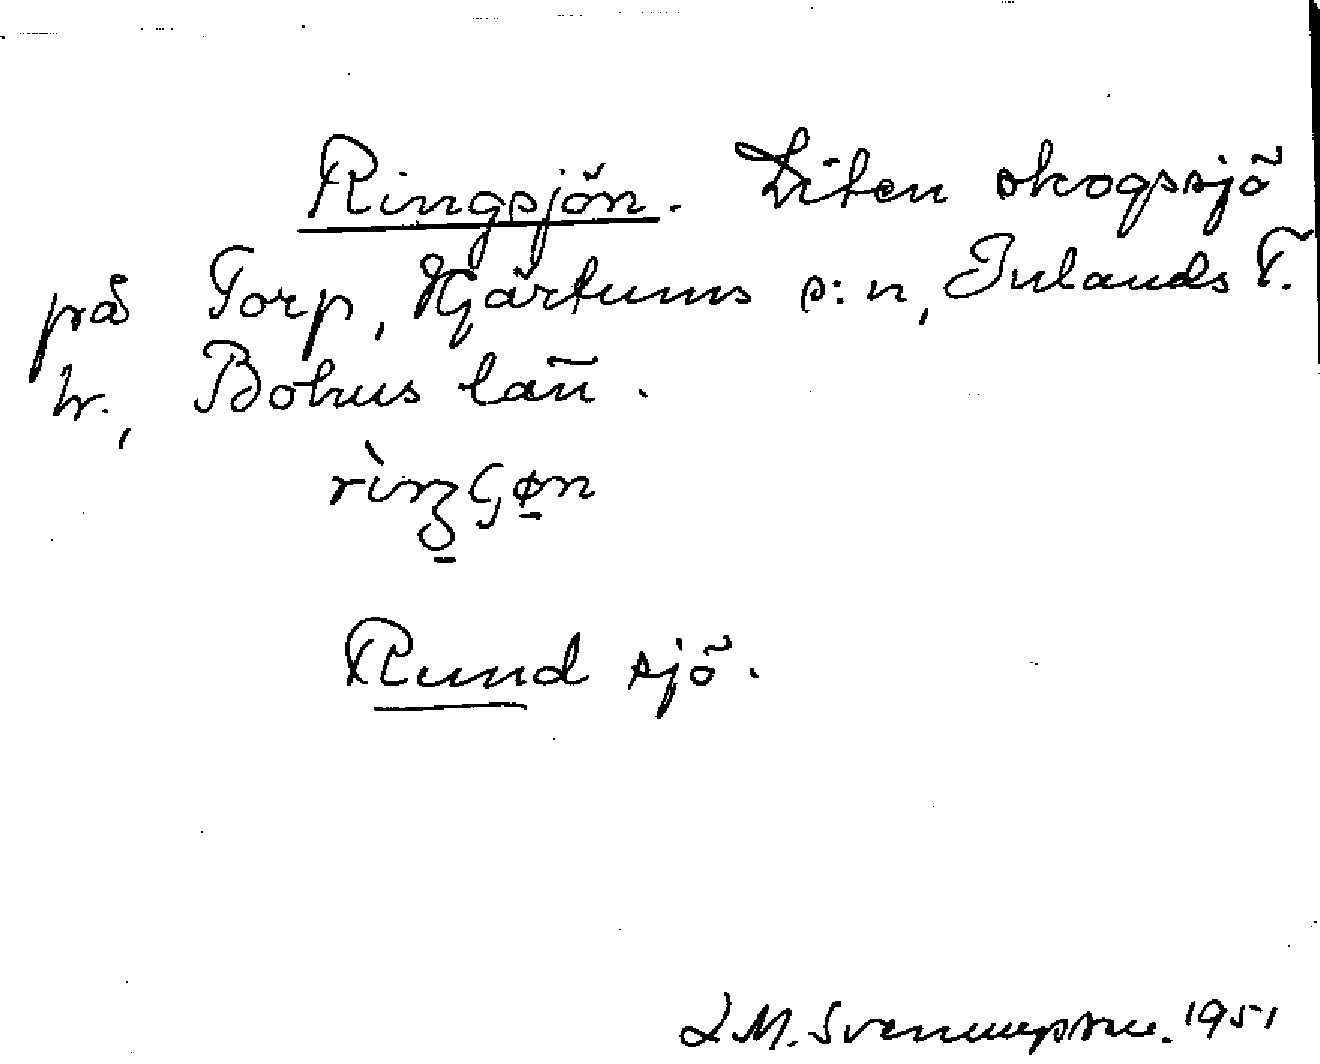 Ringsjön. Liten skogssjö
på Torp, Hjärtums s:n, Inlands T.
hr., Bohus län.
Rund sjö.
L M. Svenungsson. 1951